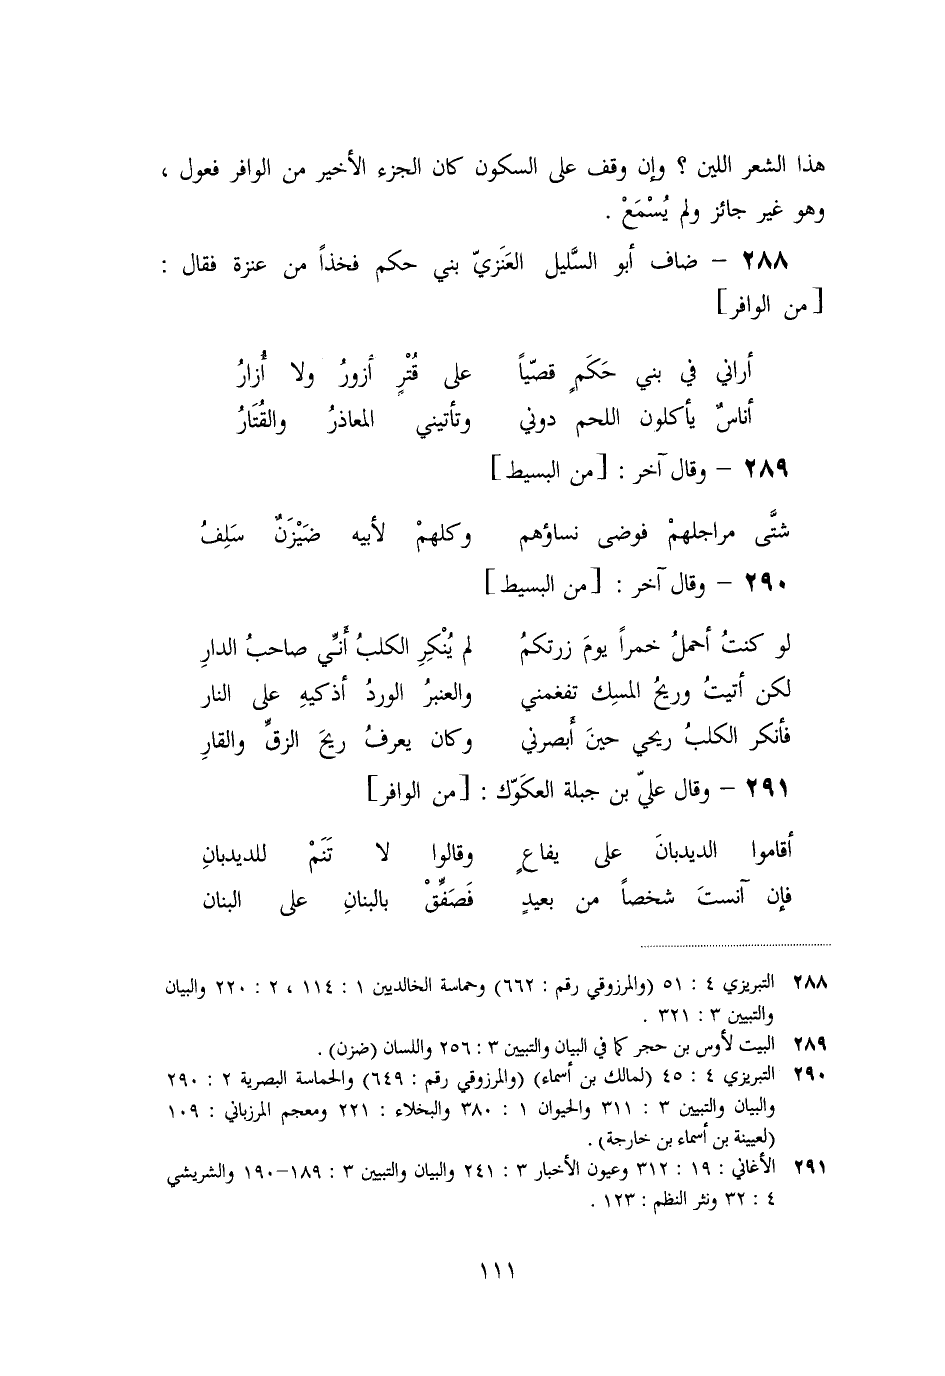 هذا الشعر اللين ؟ وإن وقف على السكون كان الجزء الأخير من الوافر فعول ،
وهو غير جائز ولم يُسْمَعْ .
٢٨٨ – ضاف أبو السَّليل العَنَزيّ بني حكم فخذاً من عنزة فقال :
[من الوافر]
أراني في بني حَكَمٍ قصّياً على قُتْرٍ أزورُ ولا أُزارُ
أناسٌ يأكلون اللحم دوني وتأتيني المعاذرُ والقُتَارُ
٢٨٩ – وقال آخر : [من البسيط]
شتَّى مراجلهمْ فوضى نساؤهم وكلهمْ لأبيه ضَيْزَنٌ سَلِفُ
٢٩٠ – وقال آخر : [من البسيط]
لو كنتُ أحملُ خمراً يومَ زرتكمُ لم يُنْكِرِ الكلبُ أَنّي صاحبُ الدارِ
لكن أتيتُ وريحُ المسكِ تفغمني والعنبرُ الوردُ أذكيهِ على النار
فأنكر الكلبُ ريحي حينَ أبصرني وكان يعرفُ ريحَ الزقِّ والقارِ
٢٩١ – وقال عليّ بن جبلة العكوّك : [من الوافر]
أقاموا الديدبانَ على يفاعٍ وقالوا لا تَنَمْ للديدبانِ
فإن آنستَ شخصاً من بعيدٍ فَصَفِّقْ بالبنانِ على البنان
٢٨٨ التبريزي ٤ : ٥١ (والمرزوقي رقم : ٦٦٢) وحماسة الخالديين ١ : ١١٤ ، ٢ : ٢٢٠ والبيان
والتبيين ٣ : ٣٢١ .
٢٨٩ البيت لأوس بن حجر كما في البيان والتبيين ٣ : ٢٥٦ واللسان (ضزن) .
٢٩٠ التبريزي ٤ : ٤٥ (لمالك بن أسماء) (والمرزوقي رقم : ٦٤٩) والحماسة البصرية ٢ : ٢٩٠
والبيان والتبيين ٣ : ٣١١ والحيوان ١ : ٣٨٠ والبخلاء : ٢٢١ ومعجم المرزباني : ١٠٩
(لعيينة بن أسماء بن خارجة) .
٢٩١ الأغاني : ١٩ : ٣١٢ وعيون الأخبار ٣ : ٢٤١ والبيان والتبيين ٣ : ١٨٩–١٩٠ والشريشي
٤ : ٣٢ ونثر النظم : ١٢٣ .
١١١